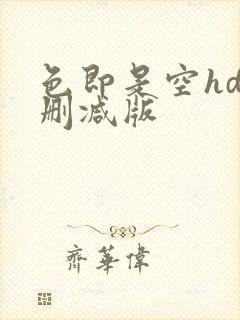 色即是空hd
删减版
齊華偉